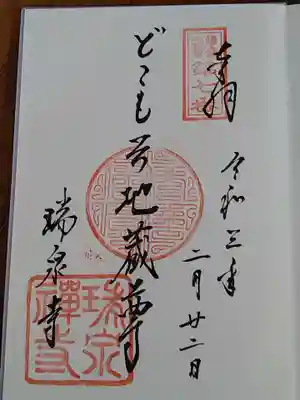 奉拝
令和三年
二月廿二日
どこも苦地蔵尊
瑞泉寺
瑞泉禅寺